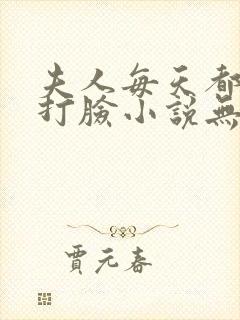 夫人每天都
打臉小說無
賈元春